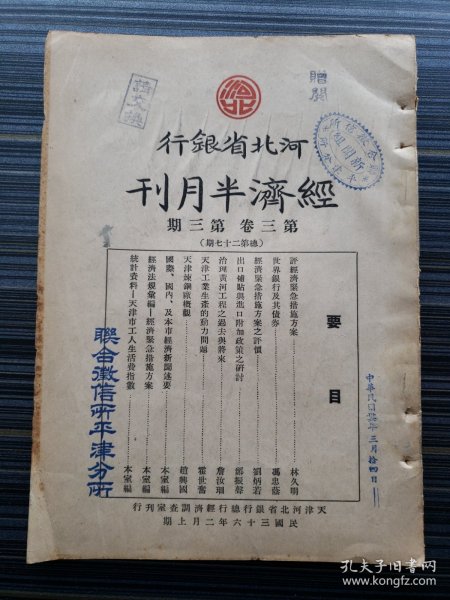 贈閱
請交換
河北省銀行
經濟半月刊
第三卷 第三期
(總第二十七期)
要目
評經濟緊急措施方案 林久明
世界銀行及其債券 馮忠蔭
經濟緊急措施方案之評價 劉炳若
出口補貼與進口附加政策之研討 鄭振聲
治理黃河工程之過去與將來 詹汝珊
天津工業生產的動力問題 霍世奮
天津煉鋼廠概觀 趙興國
國際、國內、及本市經濟新聞述要 本室編
經濟法規彙編—經濟緊急措施方案 本室編
統計資料—天津市工人生活費指數 本室編
聯合徵信所平津分所
三月拾四日
天津河北省銀行總行經濟調查室刊行
民國三十六年二月上期
孔夫子旧书网
www.kongfz.com